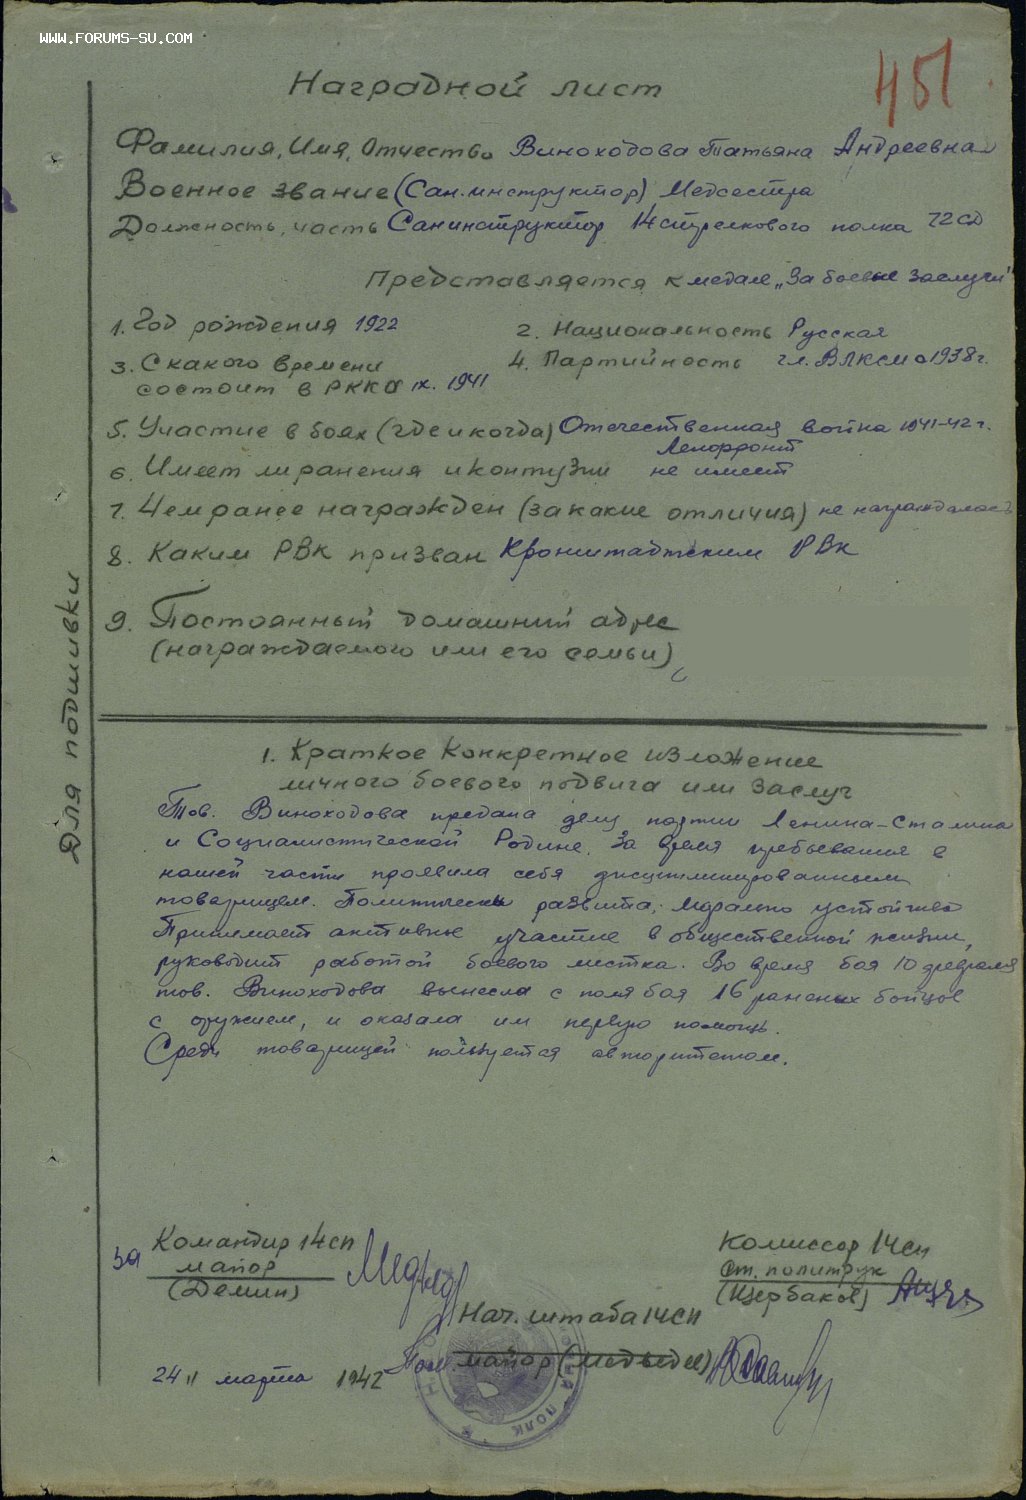 WWW.FORUMS-SU.COM
451
Наградной лист
Фамилия, Имя, Отчество Виноходова Татьяна Андреевна
Военное звание (Сан.инструктор) Медсестра
Должность, часть Санинструктор 14 стрелкового полка 72 сд
Представляется к медале „За боевые заслуги"
1. Год рождения 1922
2. Национальность Русская
3. С какого времени
состоит в РККА IX. 1941
4. Партийность чл. ВЛКСМ с 1938 г.
5. Участие в боях (где и когда) Отечественная война 1941-42 г.
Ленфронт
6. Имеет ли ранения и контузии не имеет
7. Чем ранее награжден (за какие отличия) не награждалась
8. Каким РВК призван Кронштадтским РВК
9. Постоянный домашний адрес
(награждаемого или его семьи)
Для подшивки
1. Краткое конкретное изложение
личного боевого подвига или заслуг
Тов. Виноходова предана делу партии Ленина-Сталина
и Социалистической Родине. За время пребывания в
нашей части проявила себя дисциплинированным
товарищем. Политически развита, морально устойчива
Принимает активное участие в общественной жизни,
руководит работой боевого листка. Во время боя 10 февраля
тов. Виноходова вынесла с поля боя 16 раненых бойцов
с оружием, и оказала им первую помощь.
Среди товарищей пользуется авторитетом.
за Командир 14 сп
майор
(Демин)
Комиссар 14 сп
ст. политрук
(Щербаков)
Нач. штаба 14 сп
Пом. майор (Медведев)
24 " марта 1942
ПОЛК